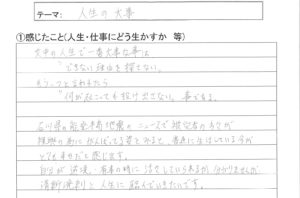 テーマ: 人生の大事
①感じたこと(人生・仕事にどう生かすか 等)
大中の人生で一番大事な事は
"できない理由を探さない。
もう一つと言われたら
"何が起こっても投げ出さない。事である。
石川県の能登半島地震のニュースで被災者の方が
復興の為に がんばってる姿をみると、普通に生活している今が
とても幸せだと感じます。
自分が 逆境、有事の時に 活き していられるか 分かりませんが
清新溌剌と人生に 臨んでいきたいです。